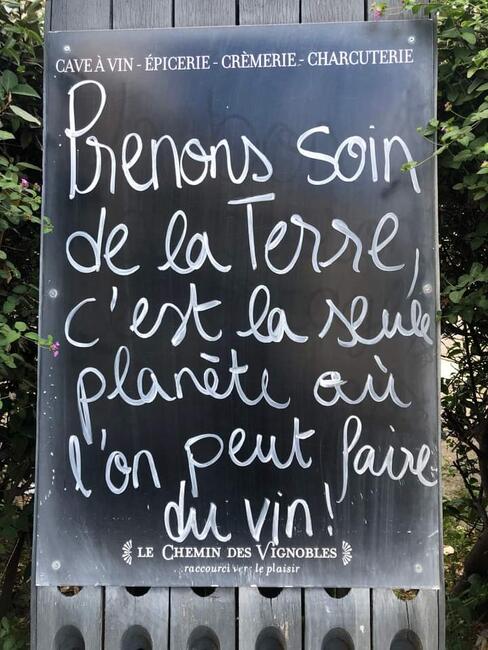 CAVE À VIN - ÉPICERIE - CRÈMERIE - CHARCUTERIE
Prenons soin
de la Terre,
c'est la seule
planète où
l'on peut faire
du vin!
LE CHEMIN DES VIGNOBLES
raccourci vers le plaisir